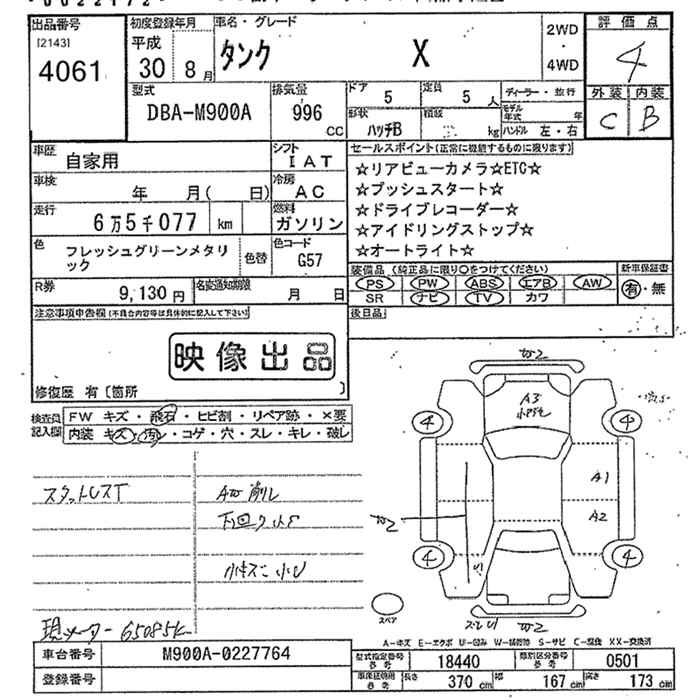 出品番号
[2143]
4061
初度登録年月
平成
30 8月
車名・グレード
タンク X
2WD
・
4WD
評価点
4
外装 内装
C B
型式
DBA-M900A
排気量
996
CC
ドア
5
定員
5 人
形状
ハッチB
積載
kg
ディーラー・並行
モデル年式 年
ハンドル 左・右
車歴
自家用
シフト
IAT
車検
年 月( 日)
冷房
AC
走行
6万5千077 km
燃料
ガソリン
色
フレッシュグリーンメタリ
ック
色替
色コード
G57
R券
9,130円
名変通知期限
月 日
セールスポイント(正常に機能するものに限ります)
☆リアビューカメラ☆ETC☆
☆プッシュスタート☆
☆ドライブレコーダー☆
☆アイドリングストップ☆
☆オートライト☆
装備品 (純正品に限り○をつけてください)
PS PW ABS エアB AW
SR ナビ TV カワ
新車保証書
有・無
後日品
注意事項申告欄(不具合内容等は具体的に記入して下さい)
映像出品
修復歴 有〔箇所 〕
検査員
記入欄
FW キズ・飛石・ヒビ割・リペア跡・×要
内装 キズ・汚レ・コゲ・穴・スレ・キレ・破レ
スタットレスT
下回り小サ
現メーター 65085k
A3
A1
A2
4
4
4
4
スペア
A-キズ E-エクボ U-凹み W-補修跡 S-サビ C-腐食 XX-交換済
車台番号
M900A-0227764
登録番号
型式指定番号
参考
18440
類別区分番号
参考
0501
車検証使用
参考
長さ 370 cm
幅 167 cm
高さ 173 cm